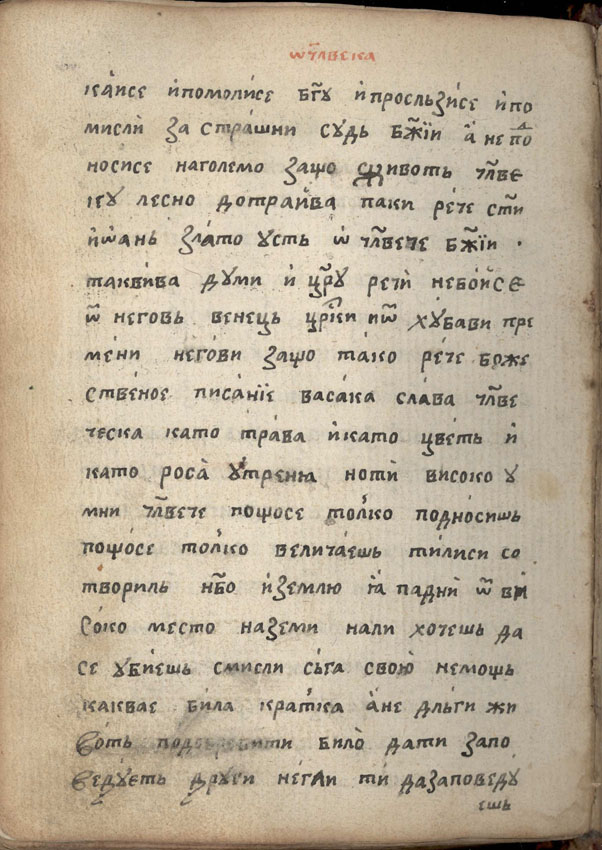 ѡ҃члвека
каисе ипомолисе бг҃у ипросльзисе ипо
мисли за страшни судь бж҃їи а не по
носисе наголемо защо животь чл҃ве
гу лесно дотраива паки рече ст҃и
иѡань злато усть ѡ чл҃вече бж҃їи ·
таквива думи и цр҃у речи небойсе
ѿ неговь венець цр҃ки иѿ хубави пре
мени негови защо тако рече боже
ственое писанїе васака слава чл҃ве
ческа като трава икато цветь и
като роса утреня ноти високо у
мни чл҃вече пощосе толко подносишь
пощосе толко величаешь тилиси со
твориль нб҃о иземлю ꙗ падни ѿ ви
соко место наземи нали хочешь да
се убиешь смисли сьга свою немощь
каквае била кратка ане дльги жи
воть било дати запо
ведуеть други негли ти дазаповеду
ешь